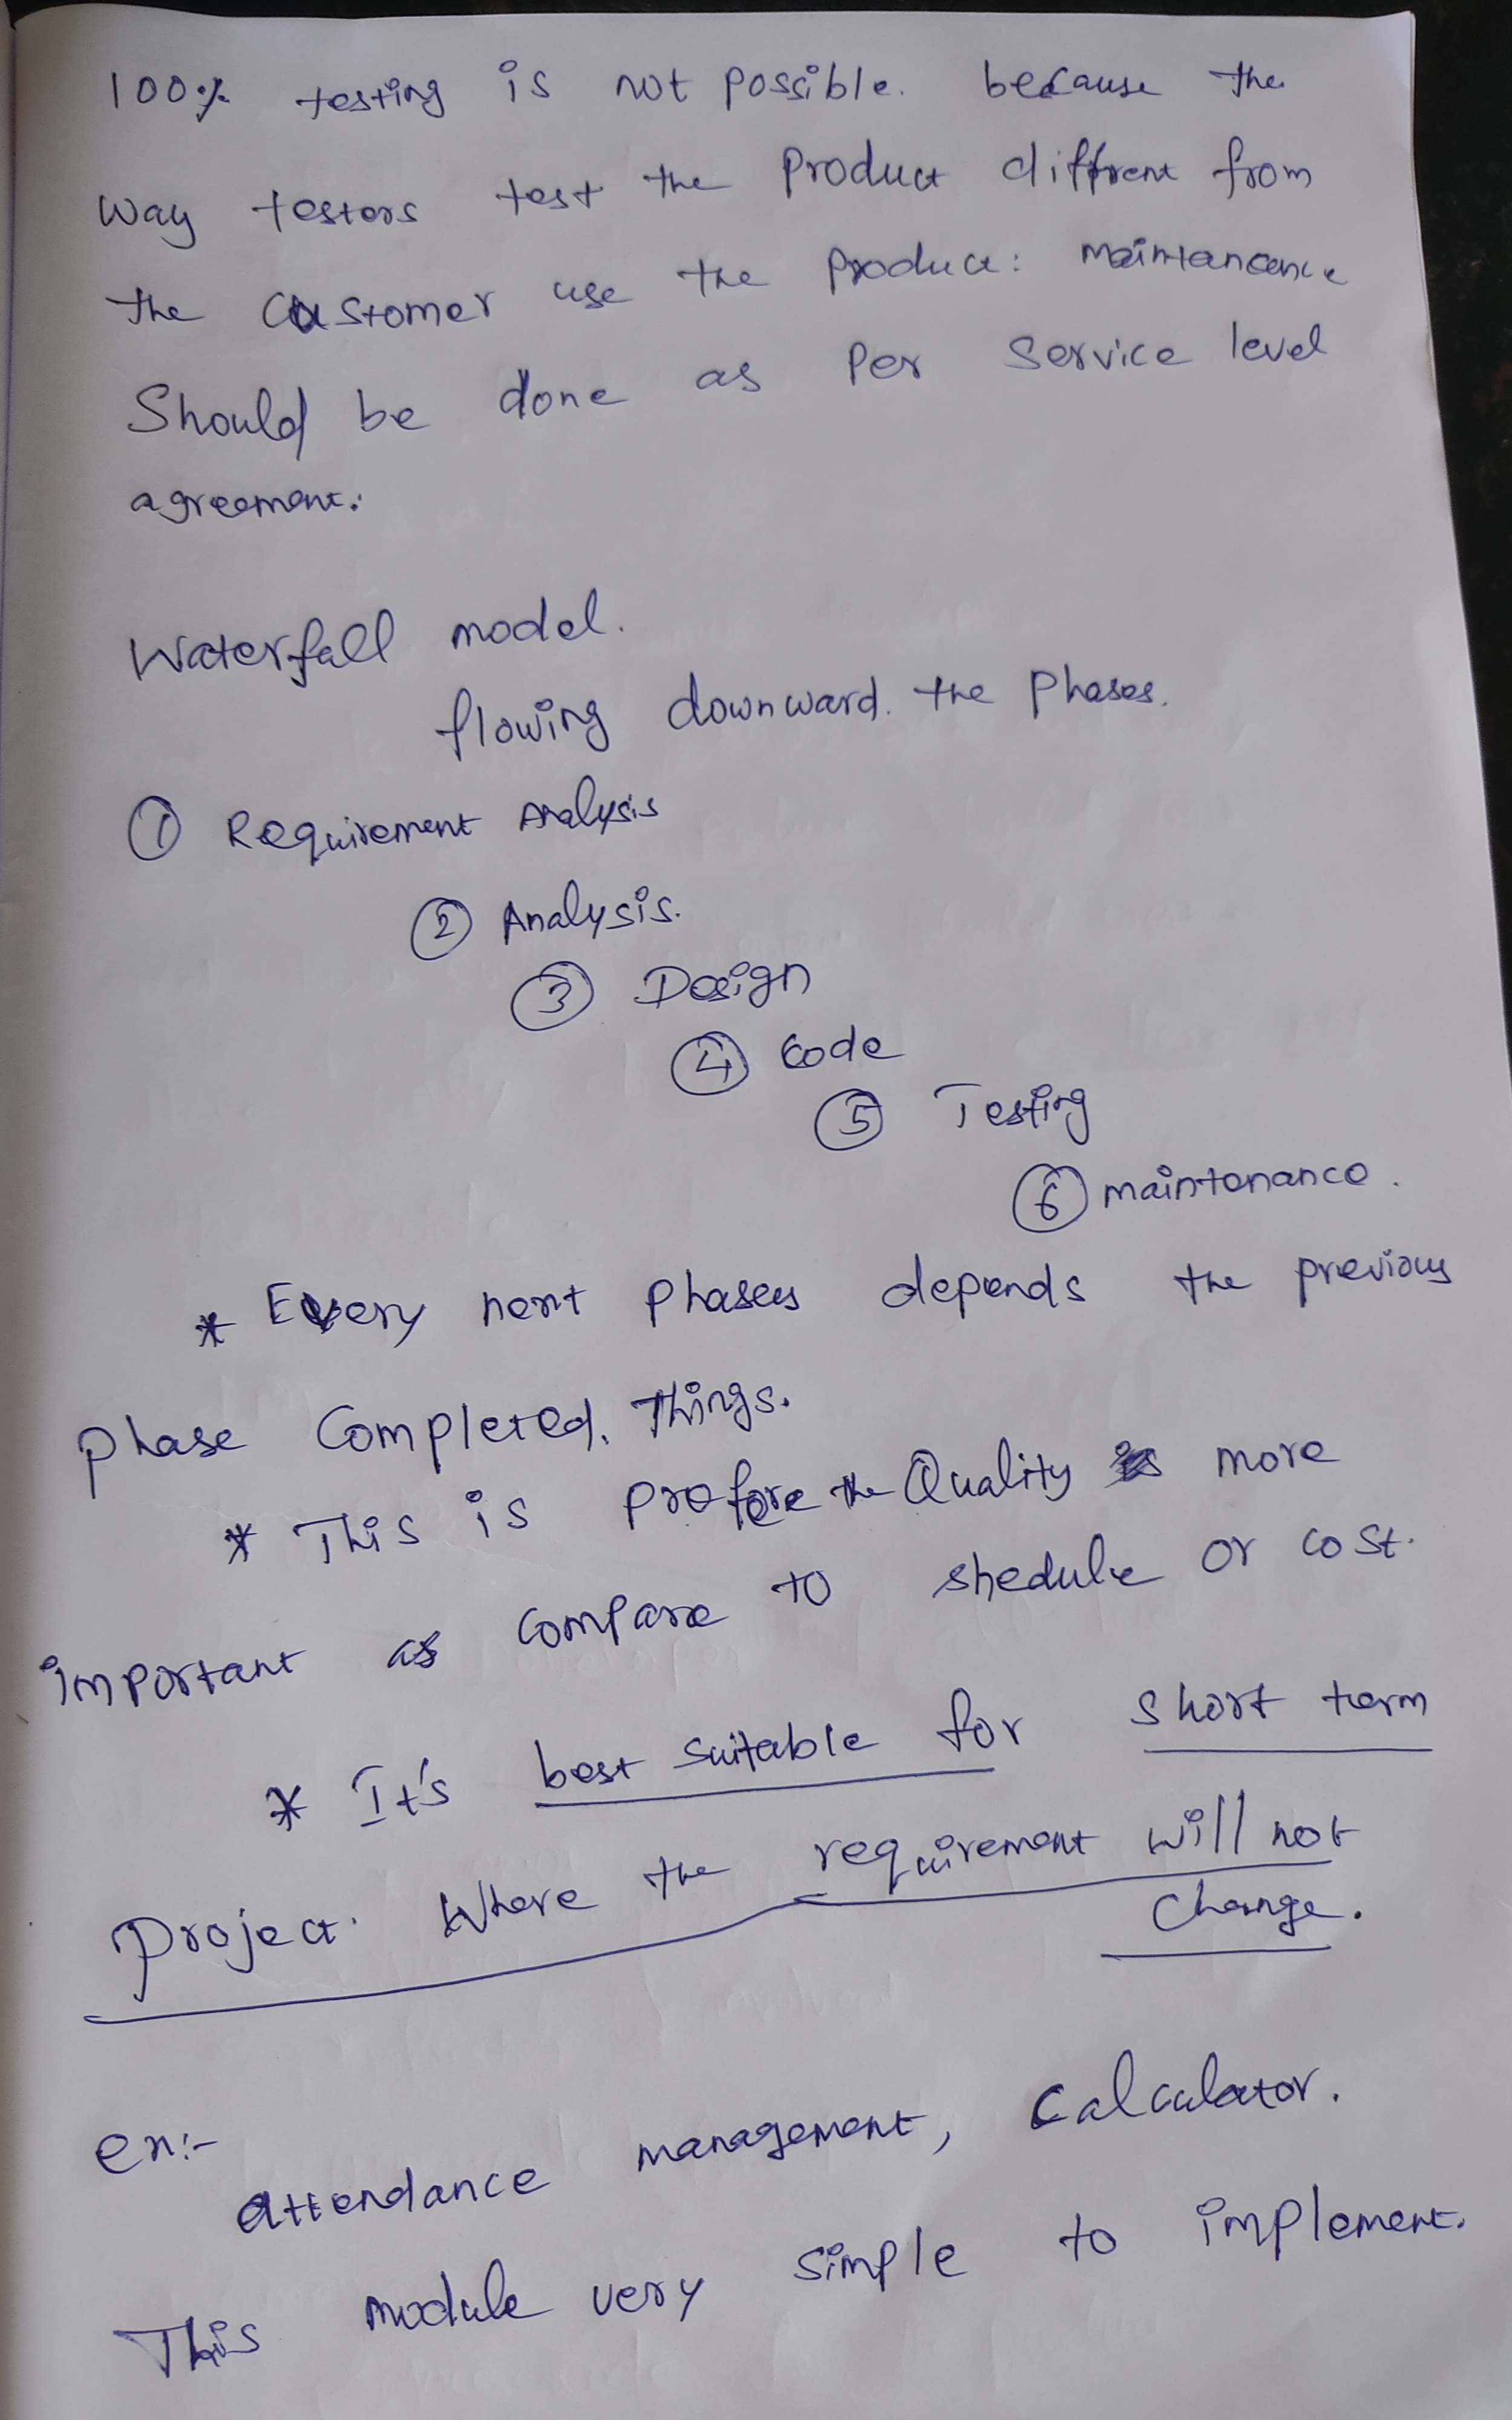 100% testing is not possible. because the
way testers test the product diffrent from
the customer use the product: maintanance
Should be done as per service level
agreement.
Waterfall model.
flowing downward. the phases.
① Requirement Analysis
② Analysis.
③ Design
④ Code
⑤ Testing
⑥ maintenance.
* Every next phases depends the previous
phase Completed. Things.
* This is prefere the Quality more
important as compare to shedule or cost.
* It's best suitable for short term
project. Where the requirement will not
change.
ex:-
attendance management, Calculator.
This module very simple to implement.